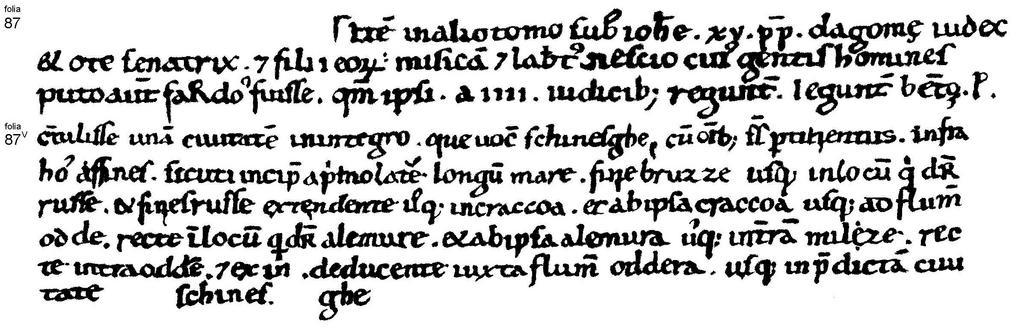 folia
87
Itē in alio tomo sub ioh̄e . xv . pp̄ . dagome iudex
& ote senatrix . ⁊ filii eoꝝ misicā ⁊ lābt᷒ . nescio cui᷒ gentis homines
puto aut̄ sardos fuisse . qm̄ ipsi . a iiii . iudicib; regunt̄ . legunt̄ beatọ . P .
folia
87v
cōtulisse unā ciuitatē in integro . que uoc̄ schinesghe , cū oīb; suis ptinentiis . infra
hos affines . sicuti incip̄ a p̄mo latere longū mare . fine bruzze usq; in locū q̇ dr̄
russe . & fines russe extendente usq; in craccoa . et ab ipsa craccoa usq; ad flum̄
odde . recte ī locū q̇ dr̄ alemure . & ab ipsa alemura usq; in t̄rā milze . rec
te intra oddē . ⁊ ex in . deducente iuxta flum̄ oddera . usq; in p̄dictā ciui
tate schines. ghe